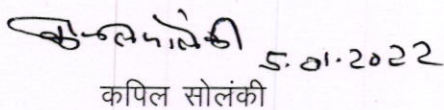 5.01.2022
कपिल सोलंकी